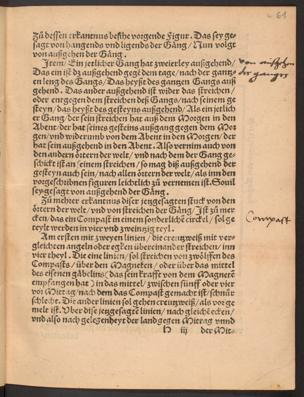 61
zů dessen erkantnus besihe volgende Figur. Das sey ge-
sagt von hangends und ligends der Gäng / Nun volgt
von außgehen der Gäng.
Item: Ein jetlicher Gang hat zweierley außgehend /
Das ein ist dz außgehend gegē dem tage / nach der gantz-
en leng des Gangs / Das heyst des gantzen Gangs auß
gehend. Das ander außgehend ist wider das streichen /
oder entgegen dem streichen des Gangs / nach seinem ge
steyn / das heyst des gesteyns außgehend / Als ein jetlich
er Gang / der sein streichen hat auß dem Morgen in den
Abent / der hat seines gesteins außgang gegen dem Mor
gen / und widerumb von dem Abent in den Morgen / der
hat sein außgehend in den Abent. Also vernim auch von
den andern örtern der welt / und nach dem der Gang ge-
schickt ist an einem streichen / so mag diß außgehend der
gesteyn auch sein / nach allen örtern der welt / als inn den
vorgeschribnen figuren leichtlich zů vernemen ist. Souil
sey gesagt von außgehend der Gäng.
von außgehen
der gange
Zů mehrer erkantnus diser jetzgesagten stuck von den
örtern der welt / und von streichen der Gäng / Ist zů mer
cken / das ein Compast in einem sonderlich circkel / sol ge
setzt werden in vier und zweintzig teyl.
Compast
Am ersten mit zweyen linien / die creutzweiß mit ver
gleichten angeln oder egken übereinander streichen / inn
vier theyl. Die eine linien / sol streichen von zwölffen des
Compasts / über den Magneten / oder über das mittel
des eisenen gäbelins (das sein krafft von dem Magnetē
empfangen hat) in das mittel / zwischen fünff oder vier
vor Mittag / nach dem das Compast gemacht ist / schnůr
schlecht. Die ander linien sol gehen creutzweiß / als vor ge
melt ist. Uber dise jetzgesagte linien / nach gleich ecken /
und also nach gelegenheyt der land gegen Mittag unnd
H iij der Mit-